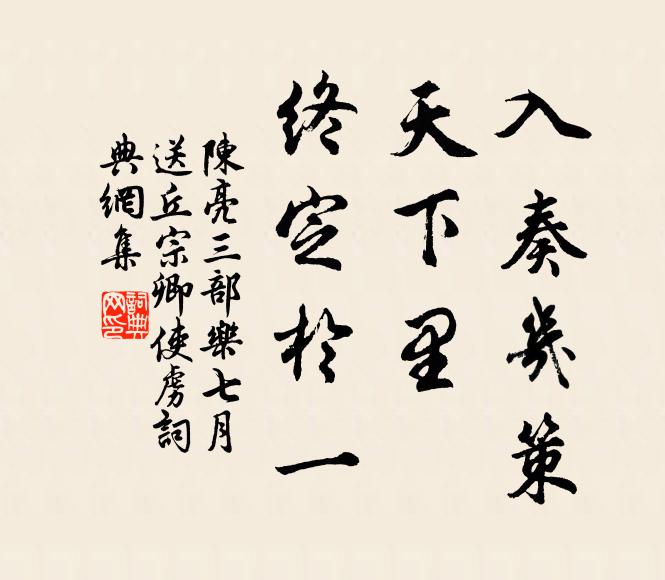 入奏幾策
天下里
終定於一
陳亮三部樂七月
送丘宗卿使虜詞
典網集
詞典网印